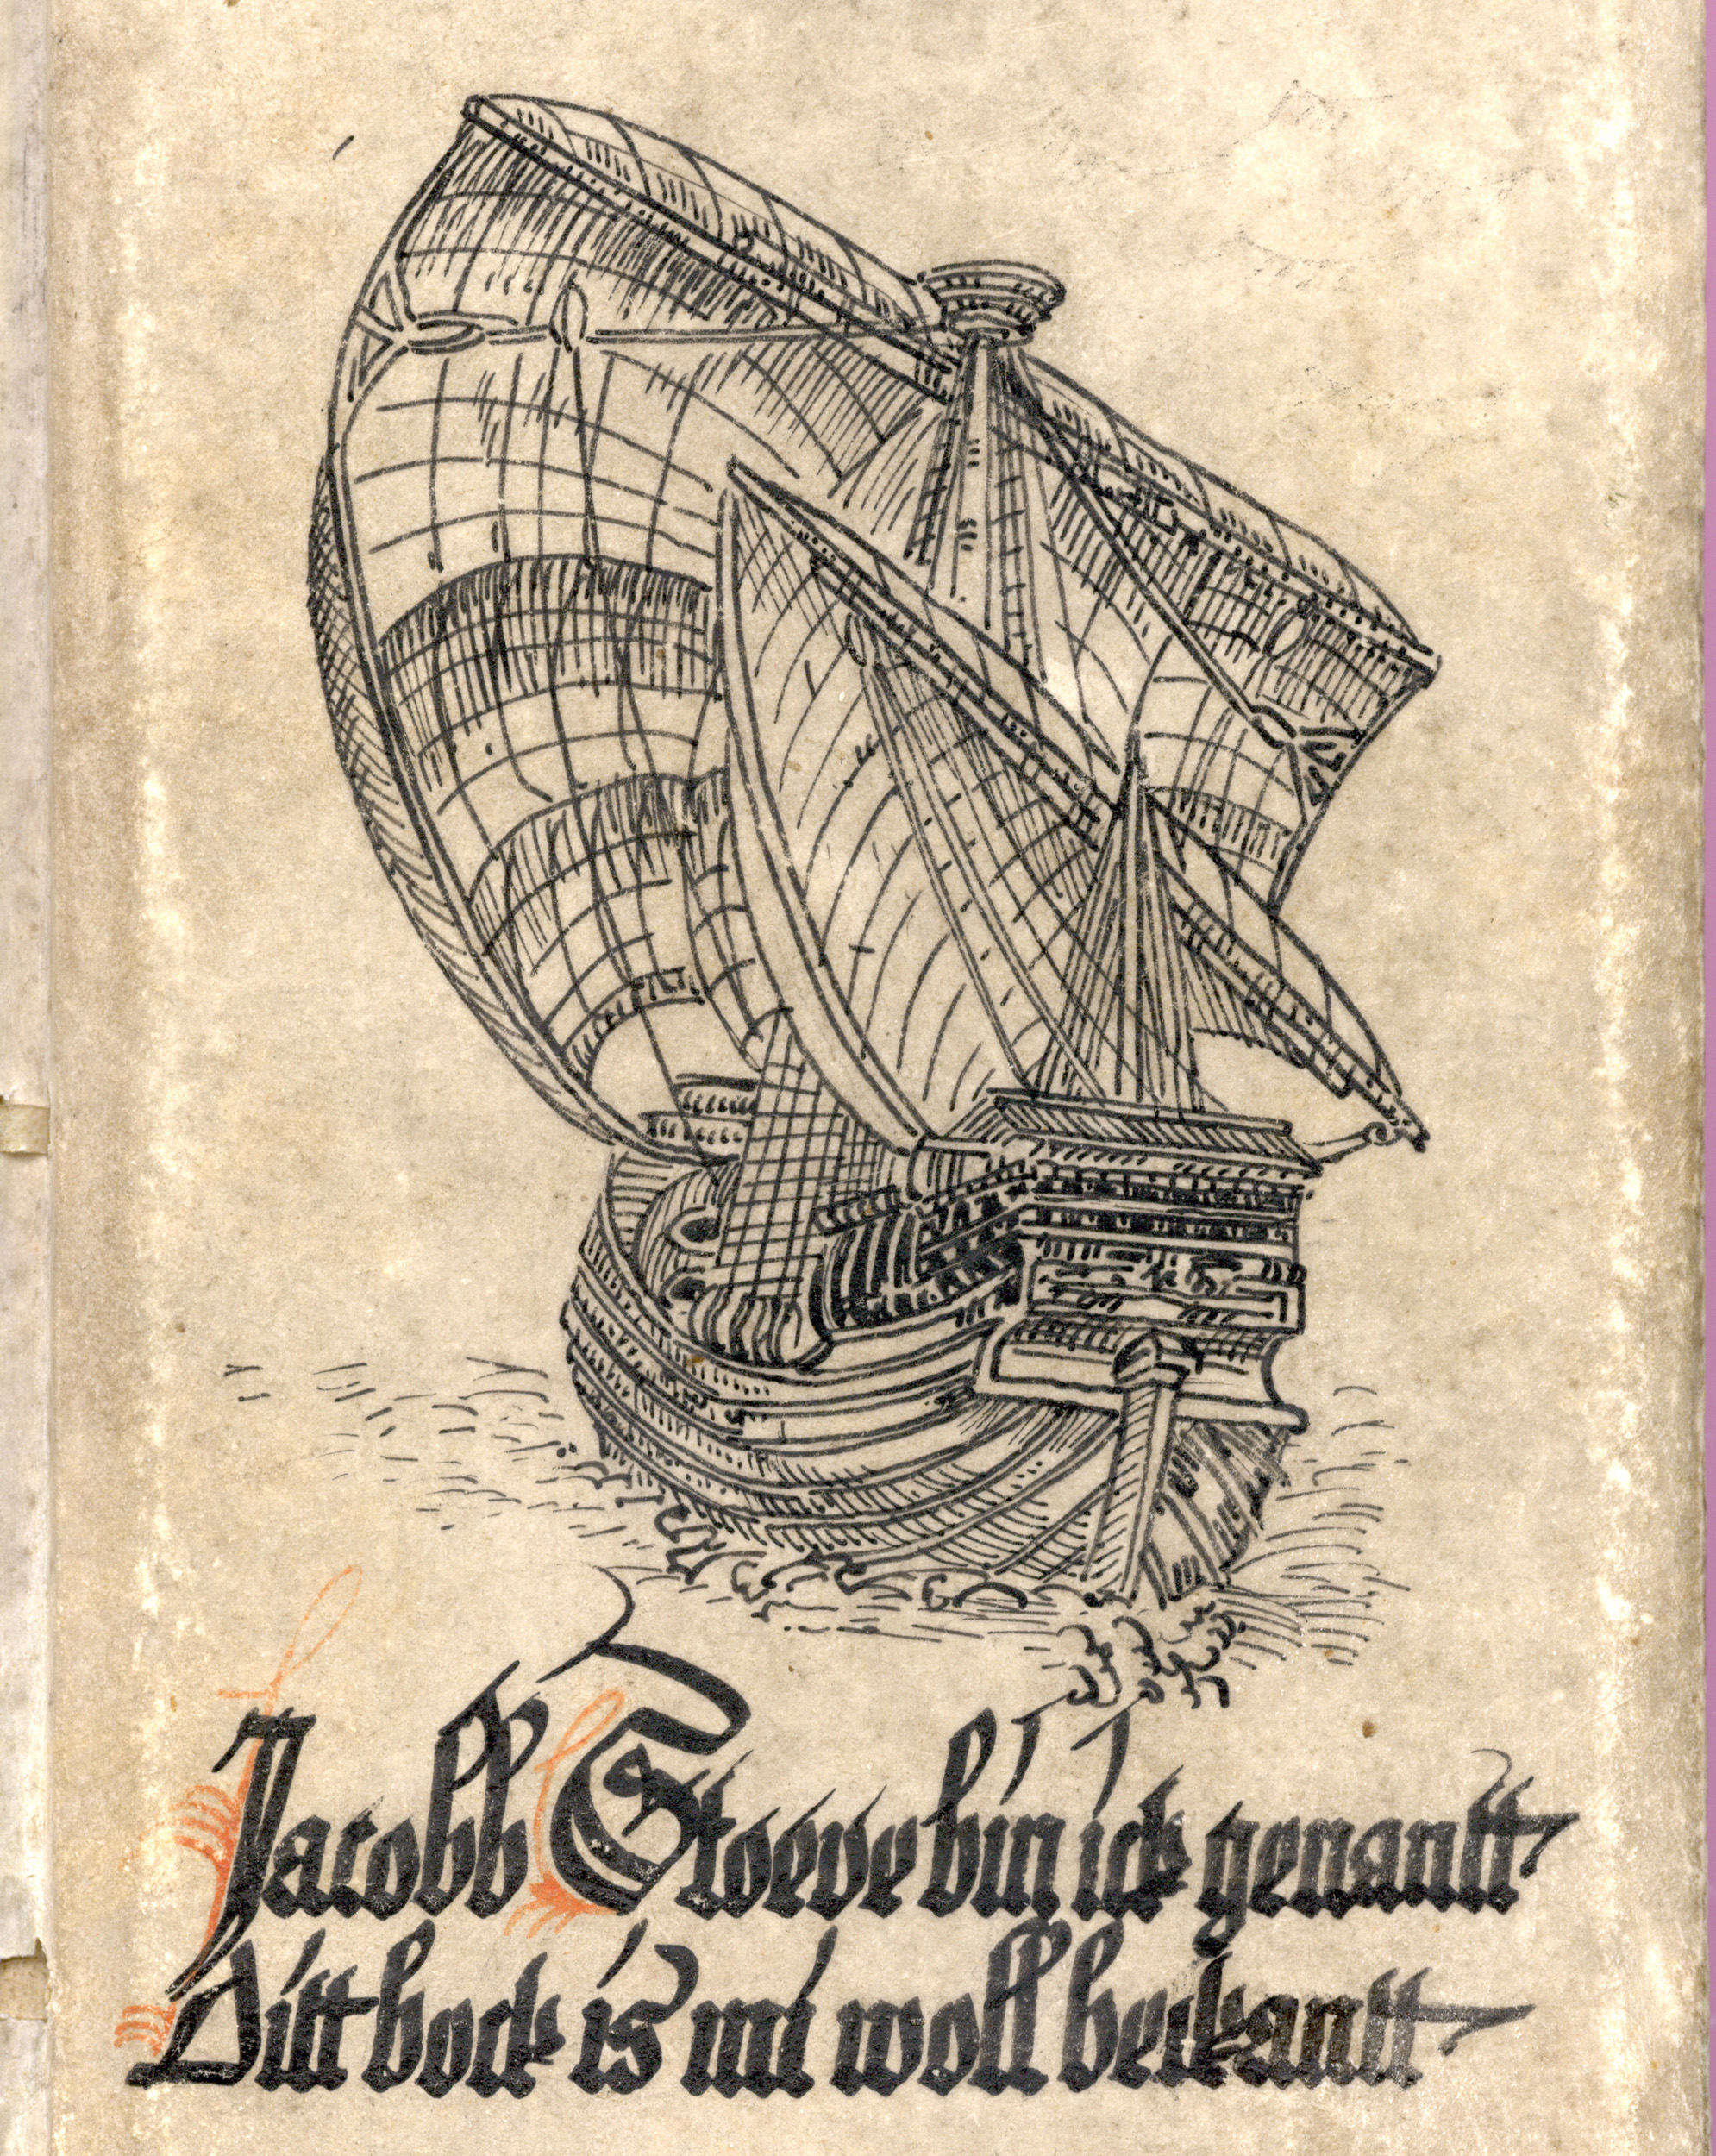 Jacobb Stoeve bin ick genantt
Ditt bock is mi woll beckantt